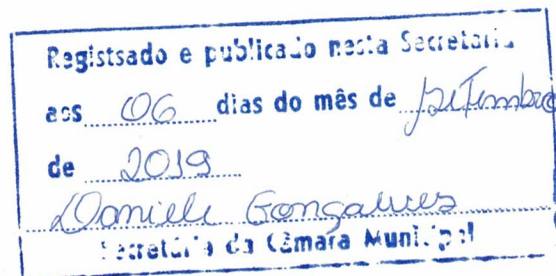 Registsado e publicado nesta Secretaria
aos 06 dias do mês de setembro
de 2019
Daniele Gonçalves
Secretária da Câmara Municipal